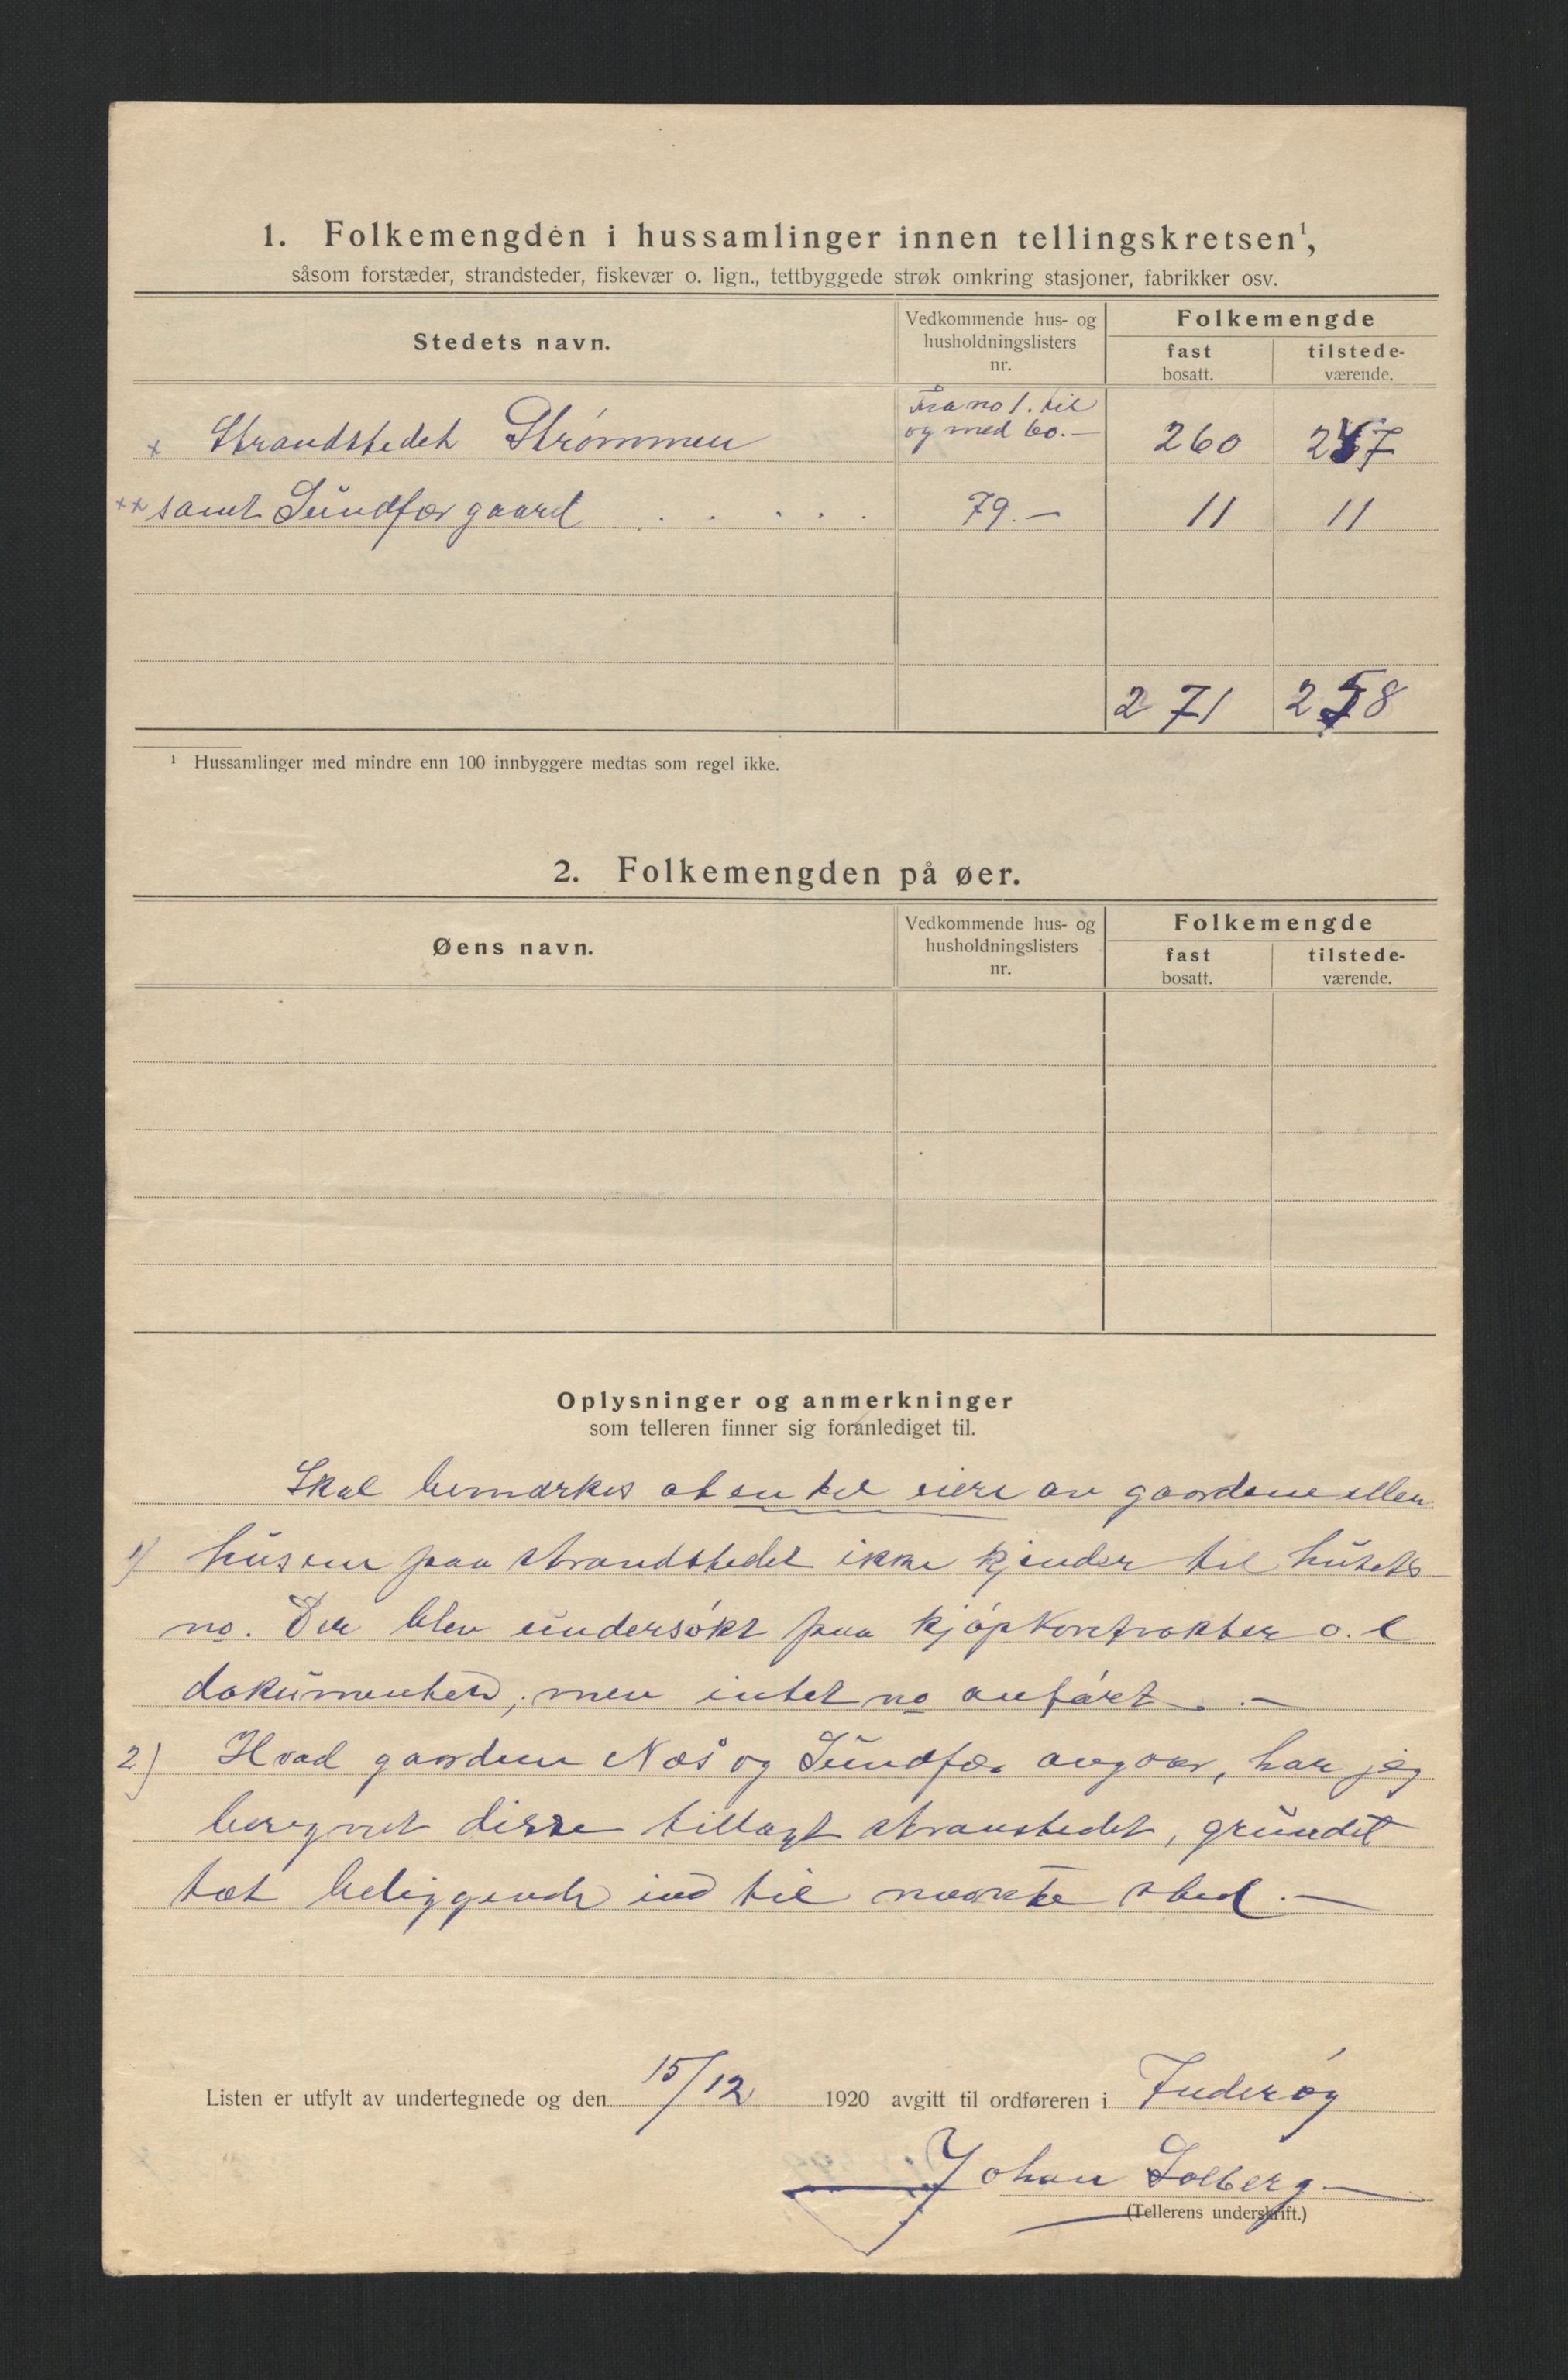 1. Folkemengden i hussamlinger innen tellingskretsen¹,
såsom forstæder, strandsteder, fiskevær o. lign., tettbyggede strøk omkring stasjoner, fabrikker osv.
Stedets navn.
Vedkommende hus- og husholdningslisters nr.
Folkemengde
fast bosatt.
tilstede- værende.
Fra no 1. til
x Strandstedet Strømmen og med 60.— 260 247
xx samt Sundfærgaard . . . . . 79.— 11 11
271 258
¹ Hussamlinger med mindre enn 100 innbyggere medtas som regel ikke.
2. Folkemengden på øer.
Øens navn.
Vedkommende hus- og husholdningslisters nr.
Folkemengde
fast bosatt.
tilstede- værende.
Oplysninger og anmerkninger
som telleren finner sig foranlediget til.
Skal bemærkes at en del eiere av gaardene eller
1) husene paa strandstedet ikke kjender til husets
no. Der blev undersøkt paa kjøpkontrakter o. l
dokumenter, men intet no anført. —
2) Hvad gaardene Næs og Sundfær angaar, har jeg
beregnet disse tillagt stranstedet, grundet
tæt beliggende ind til næste sted. —
Listen er utfylt av undertegnede og den 15/12 1920 avgitt til ordføreren i Inderøy
Johan Solberg.—
(Tellerens underskrift.)